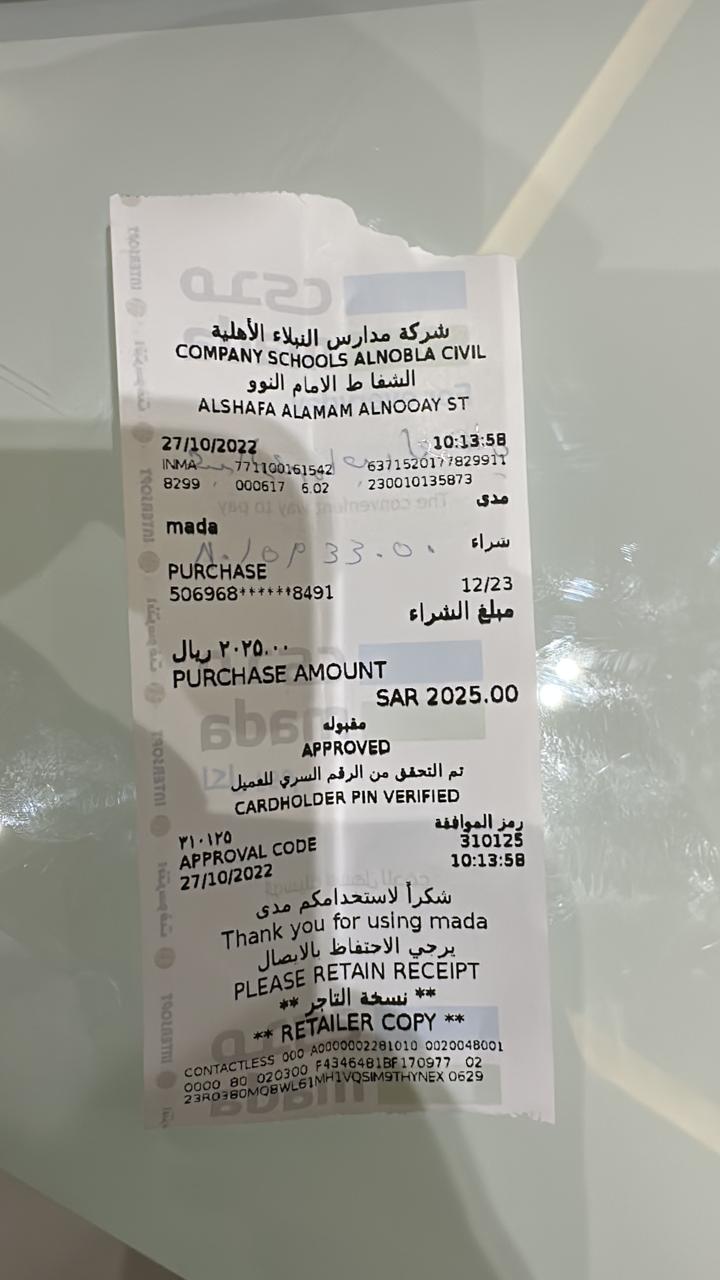 شركة مدارس النبلاء الأهلية
COMPANY SCHOOLS ALNOBLA CIVIL
الشفا ط الامام النوو
ALSHAFA ALAMAM ALNOOAY ST
27/10/2022 10:13:58
INMA 771100161542 6371520177829911
8299 000617 6.02 230010135873
مدى
mada
شراء
PURCHASE
506968******8491 12/23
مبلغ الشراء
٢٠٢٥.٠٠ ريال
PURCHASE AMOUNT
SAR 2025.00
مقبوله
APPROVED
تم التحقق من الرقم السري للعميل
CARDHOLDER PIN VERIFIED
رمز الموافقة
٣١٠١٢٥ 310125
APPROVAL CODE
27/10/2022 10:13:58
شكراً لاستخدامكم مدى
Thank you for using mada
يرجي الاحتفاظ بالايصال
PLEASE RETAIN RECEIPT
** نسخة التاجر **
** RETAILER COPY **
CONTACTLESS 000 A0000002281010 0020048001
0000 80 020300 F4346481BF170977 02
23R0380MQBWL61MH1VQSIM9THYNEX 0629